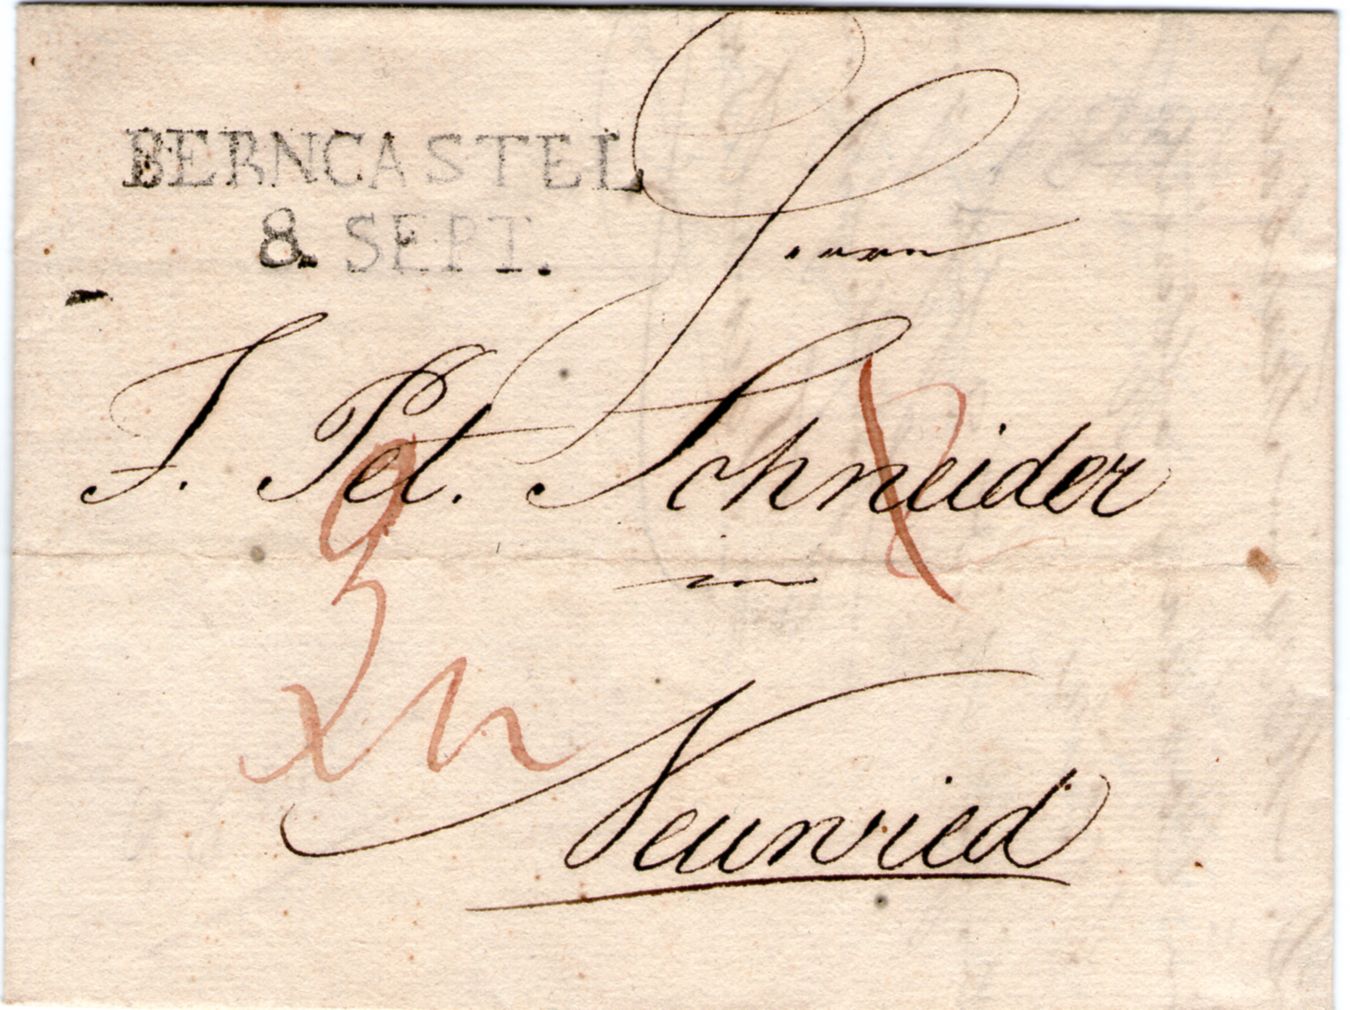 BERNCASTEL
8. SEPT.
Herrn
J. Pet. Schneider
in
Neuwied